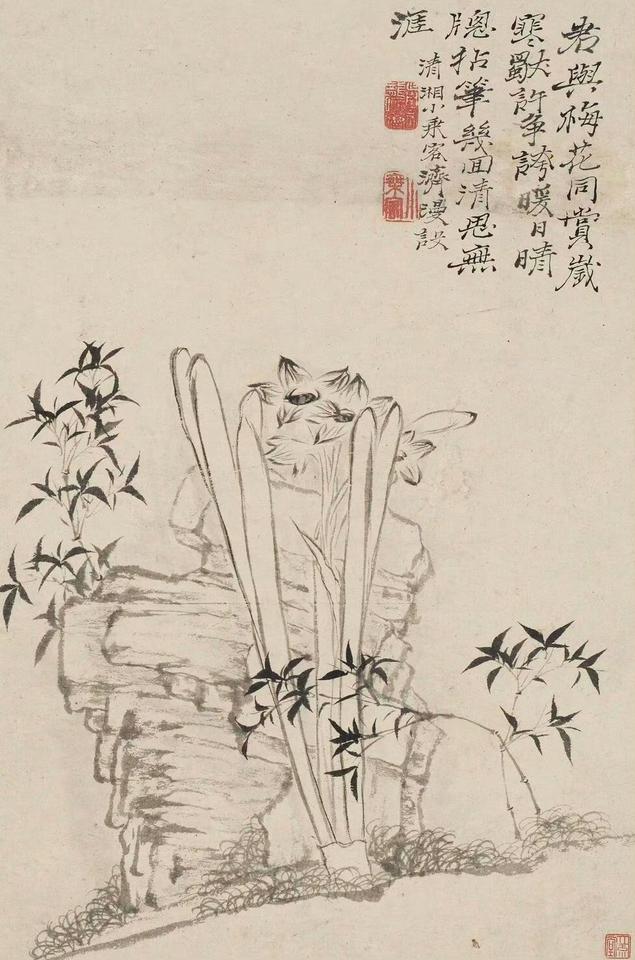 君與梅花同賞歲
寒獨許爭誇暖日晴
牕拈筆幾回清思無
涯
清湘小乘客濟漫設
小乘客